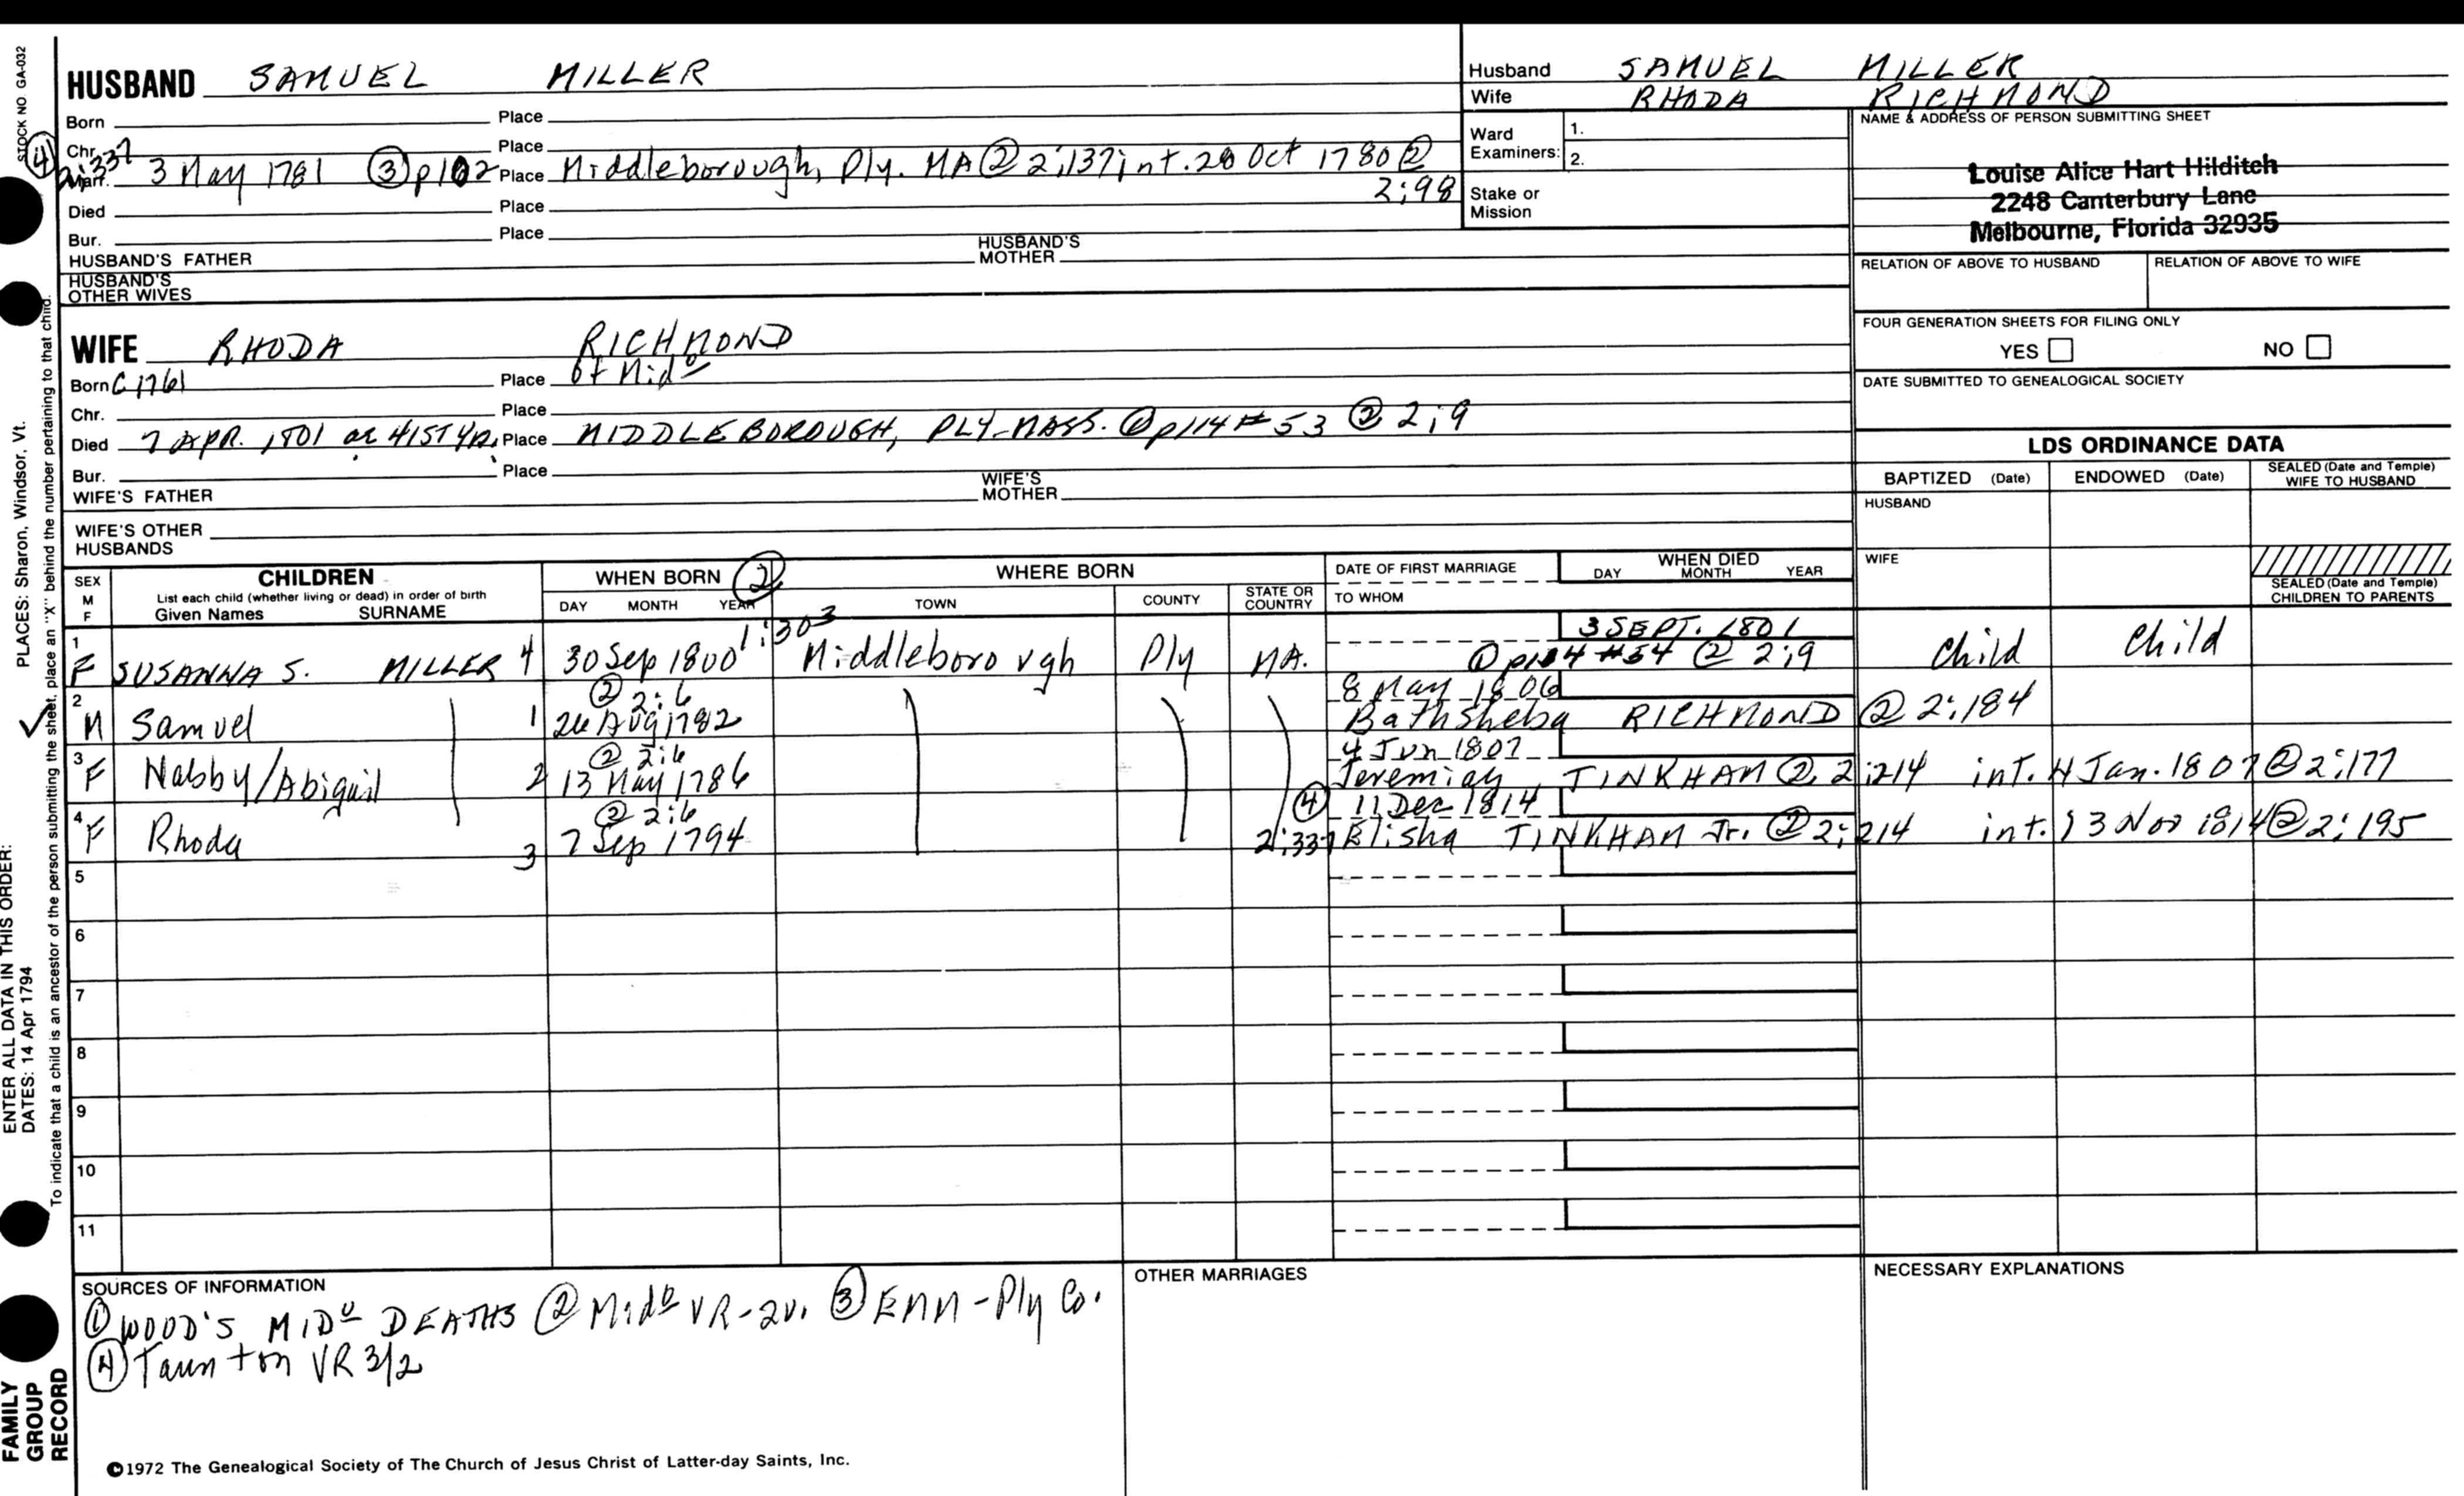 STOCK NO GA-032
HUSBAND SAMUEL MILLER
Born Place
Chr. Place
④ 2:337
Marr. 3 May 1781 ③ p102 Place Middleborough, Ply. MA ② 2;137; int. 28 Oct 1780 ②
2;98
Died Place
Bur. Place
HUSBAND'S FATHER HUSBAND'S MOTHER
HUSBAND'S OTHER WIVES
Husband SAMUEL MILLER
Wife RHODA RICHMOND
Ward Examiners: 1.
2.
Stake or Mission
NAME & ADDRESS OF PERSON SUBMITTING SHEET
Louise Alice Hart Hilditch
2248 Canterbury Lane
Melbourne, Florida 32935
RELATION OF ABOVE TO HUSBAND RELATION OF ABOVE TO WIFE
FOUR GENERATION SHEETS FOR FILING ONLY
YES NO
DATE SUBMITTED TO GENEALOGICAL SOCIETY
WIFE RHODA RICHMOND
Born C 1761 Place of Mido
Chr. Place
Died 7 APR. 1801 ae 41ST YR. Place MIDDLEBOROUGH, PLY-MASS. ① p114 #53 ② 2;9
Bur. Place
WIFE'S FATHER WIFE'S MOTHER
WIFE'S OTHER HUSBANDS
LDS ORDINANCE DATA
BAPTIZED (Date) ENDOWED (Date) SEALED (Date and Temple) WIFE TO HUSBAND
HUSBAND
WIFE
SEALED (Date and Temple) CHILDREN TO PARENTS
SEX M F
CHILDREN
List each child (whether living or dead) in order of birth
Given Names SURNAME
WHEN BORN ②
DAY MONTH YEAR
WHERE BORN
TOWN COUNTY STATE OR COUNTRY
DATE OF FIRST MARRIAGE
TO WHOM
WHEN DIED
DAY MONTH YEAR
1:303 3 SEPT. 1801
1 F SUSANNA S. MILLER 4 30 Sep 1800 Middleborough Ply MA. ① p114 #54 ② 2;9 Child Child
② 2:6 8 May 1806
2 M Samuel 1 26 Aug 1782 Bathsheba RICHMOND ② 2:184
② 2:6 4 Jun 1807
3 F Nabby/Abigail 2 13 May 1786 Jeremiah TINKHAM ② 2:214 int. 4 Jan. 1807 ② 2:177
② 2:6 ④ 11 Dec 1814
4 F Rhoda 3 7 Sep 1794 2:337 Elisha TINKHAM Jr. ② 2:214 int. 13 Nov 1814 ② 2:195
5
6
7
8
9
10
11
SOURCES OF INFORMATION
① WOOD'S MIDo DEATHS ② Mido VR-2v. ③ EMM-Ply Co.
④ Taunton VR 3/2
OTHER MARRIAGES
NECESSARY EXPLANATIONS
©1972 The Genealogical Society of The Church of Jesus Christ of Latter-day Saints, Inc.
FAMILY GROUP RECORD
ENTER ALL DATA IN THIS ORDER:
DATES: 14 Apr 1794 PLACES: Sharon, Windsor, Vt.
To indicate that a child is an ancestor of the person submitting the sheet, place an "X" behind the number pertaining to that child.